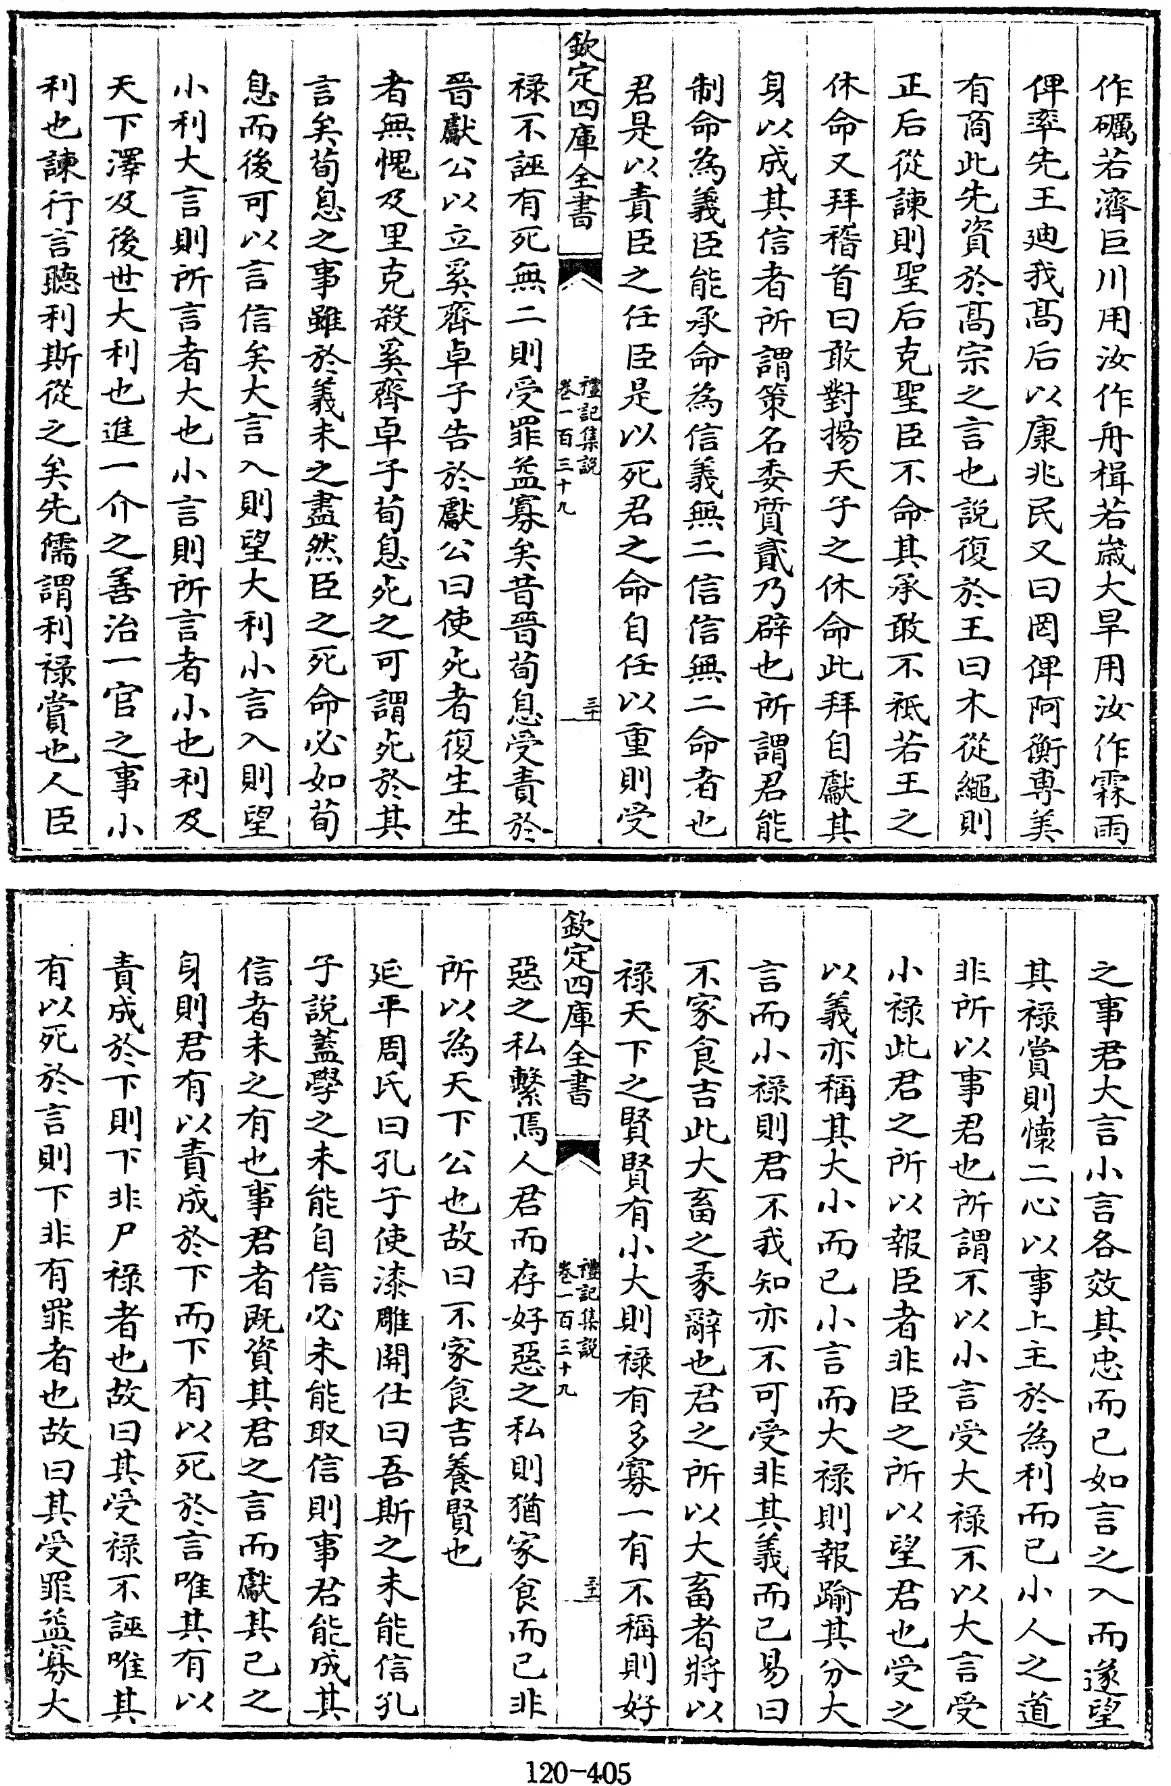 作礪若濟巨川用汝作舟楫若嵗大旱用汝作霖雨
俾率先王廸我髙后以康兆民又曰罔俾阿衡専美
有商此先資於髙宗之言也説復於王曰木從繩則
正后從諫則聖后克聖臣不命其承敢不祗若王之
休命又拜稽首曰敢對揚天子之休命此拜自獻其
身以成其信者所謂策名委質貳乃辟也所謂君能
制命為義臣能承命為信義無二信信無二命者也
君是以責臣之任臣是以死君之命自任以重則受
欽定四庫全書
禮記集説
卷一百三十九
三十一
禄不誣有死無二則受罪益寡矣昔晉荀息受責於
晉獻公以立奚齊卓子告於獻公曰使死者復生生
者無愧及里克殺奚齊卓子荀息死之可謂死於其
言矣荀息之事雖於義未之盡然臣之死命必如荀
息而後可以言信矣大言入則望大利小言入則望
小利大言則所言者大也小言則所言者小也利及
天下澤及後世大利也進一介之善治一官之事小
利也諫行言聽利斯從之矣先儒謂利禄賞也人臣
之事君大言小言各效其忠而已如言之入而遂望
其禄賞則懷二心以事上主於為利而已小人之道
非所以事君也所謂不以小言受大禄不以大言受
小禄此君之所以報臣者非臣之所以望君也受之
以義亦稱其大小而已小言而大禄則報踰其分大
言而小禄則君不我知亦不可受非其義而已易曰
不家食吉此大畜之彖辭也君之所以大畜者將以
禄天下之賢賢有小大則禄有多寡一有不稱則好
欽定四庫全書
禮記集説
卷一百三十九
惡之私繫焉人君而存好惡之私則猶家食而已非
所以為天下公也故曰不家食吉養賢也
延平周氏曰孔子使漆雕開仕曰吾斯之未能信孔
子説蓋學之未能自信必未能取信則事君能成其
信者未之有也事君者既資其君之言而獻其己之
身則君有以責成於下而下有以死於言唯其有以
責成於下則下非尸禄者也故曰其受禄不誣唯其
有以死於言則下非有罪者也故曰其受罪益寡大
120-405